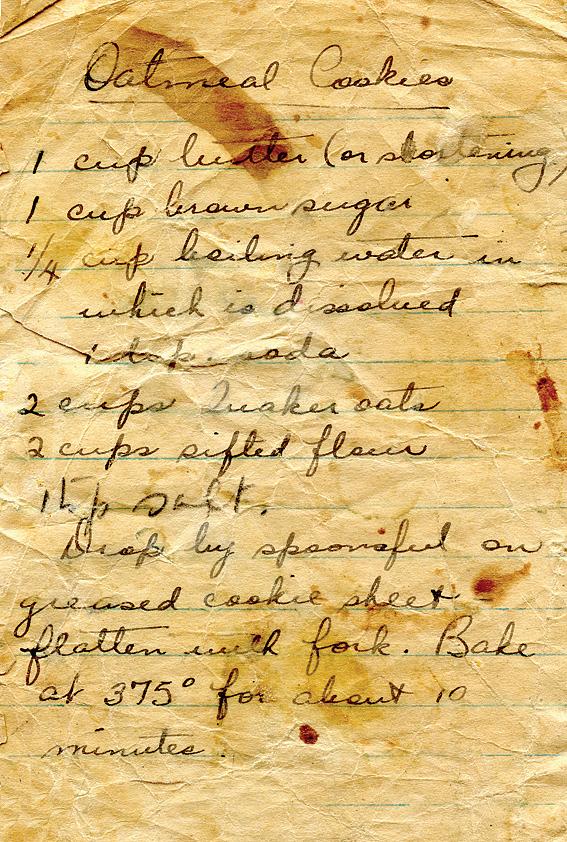 Oatmeal Cookies
1 cup butter (or shortening)
1 cup brown sugar
1/4 cup boiling water in
which is dissolved
1 tsp. soda
2 cups Quaker oats
2 cups sifted flour
1 tsp salt.
Drop by spoonsful on
greased cookie sheet -
flatten with fork. Bake
at 375° for about 10
minutes.